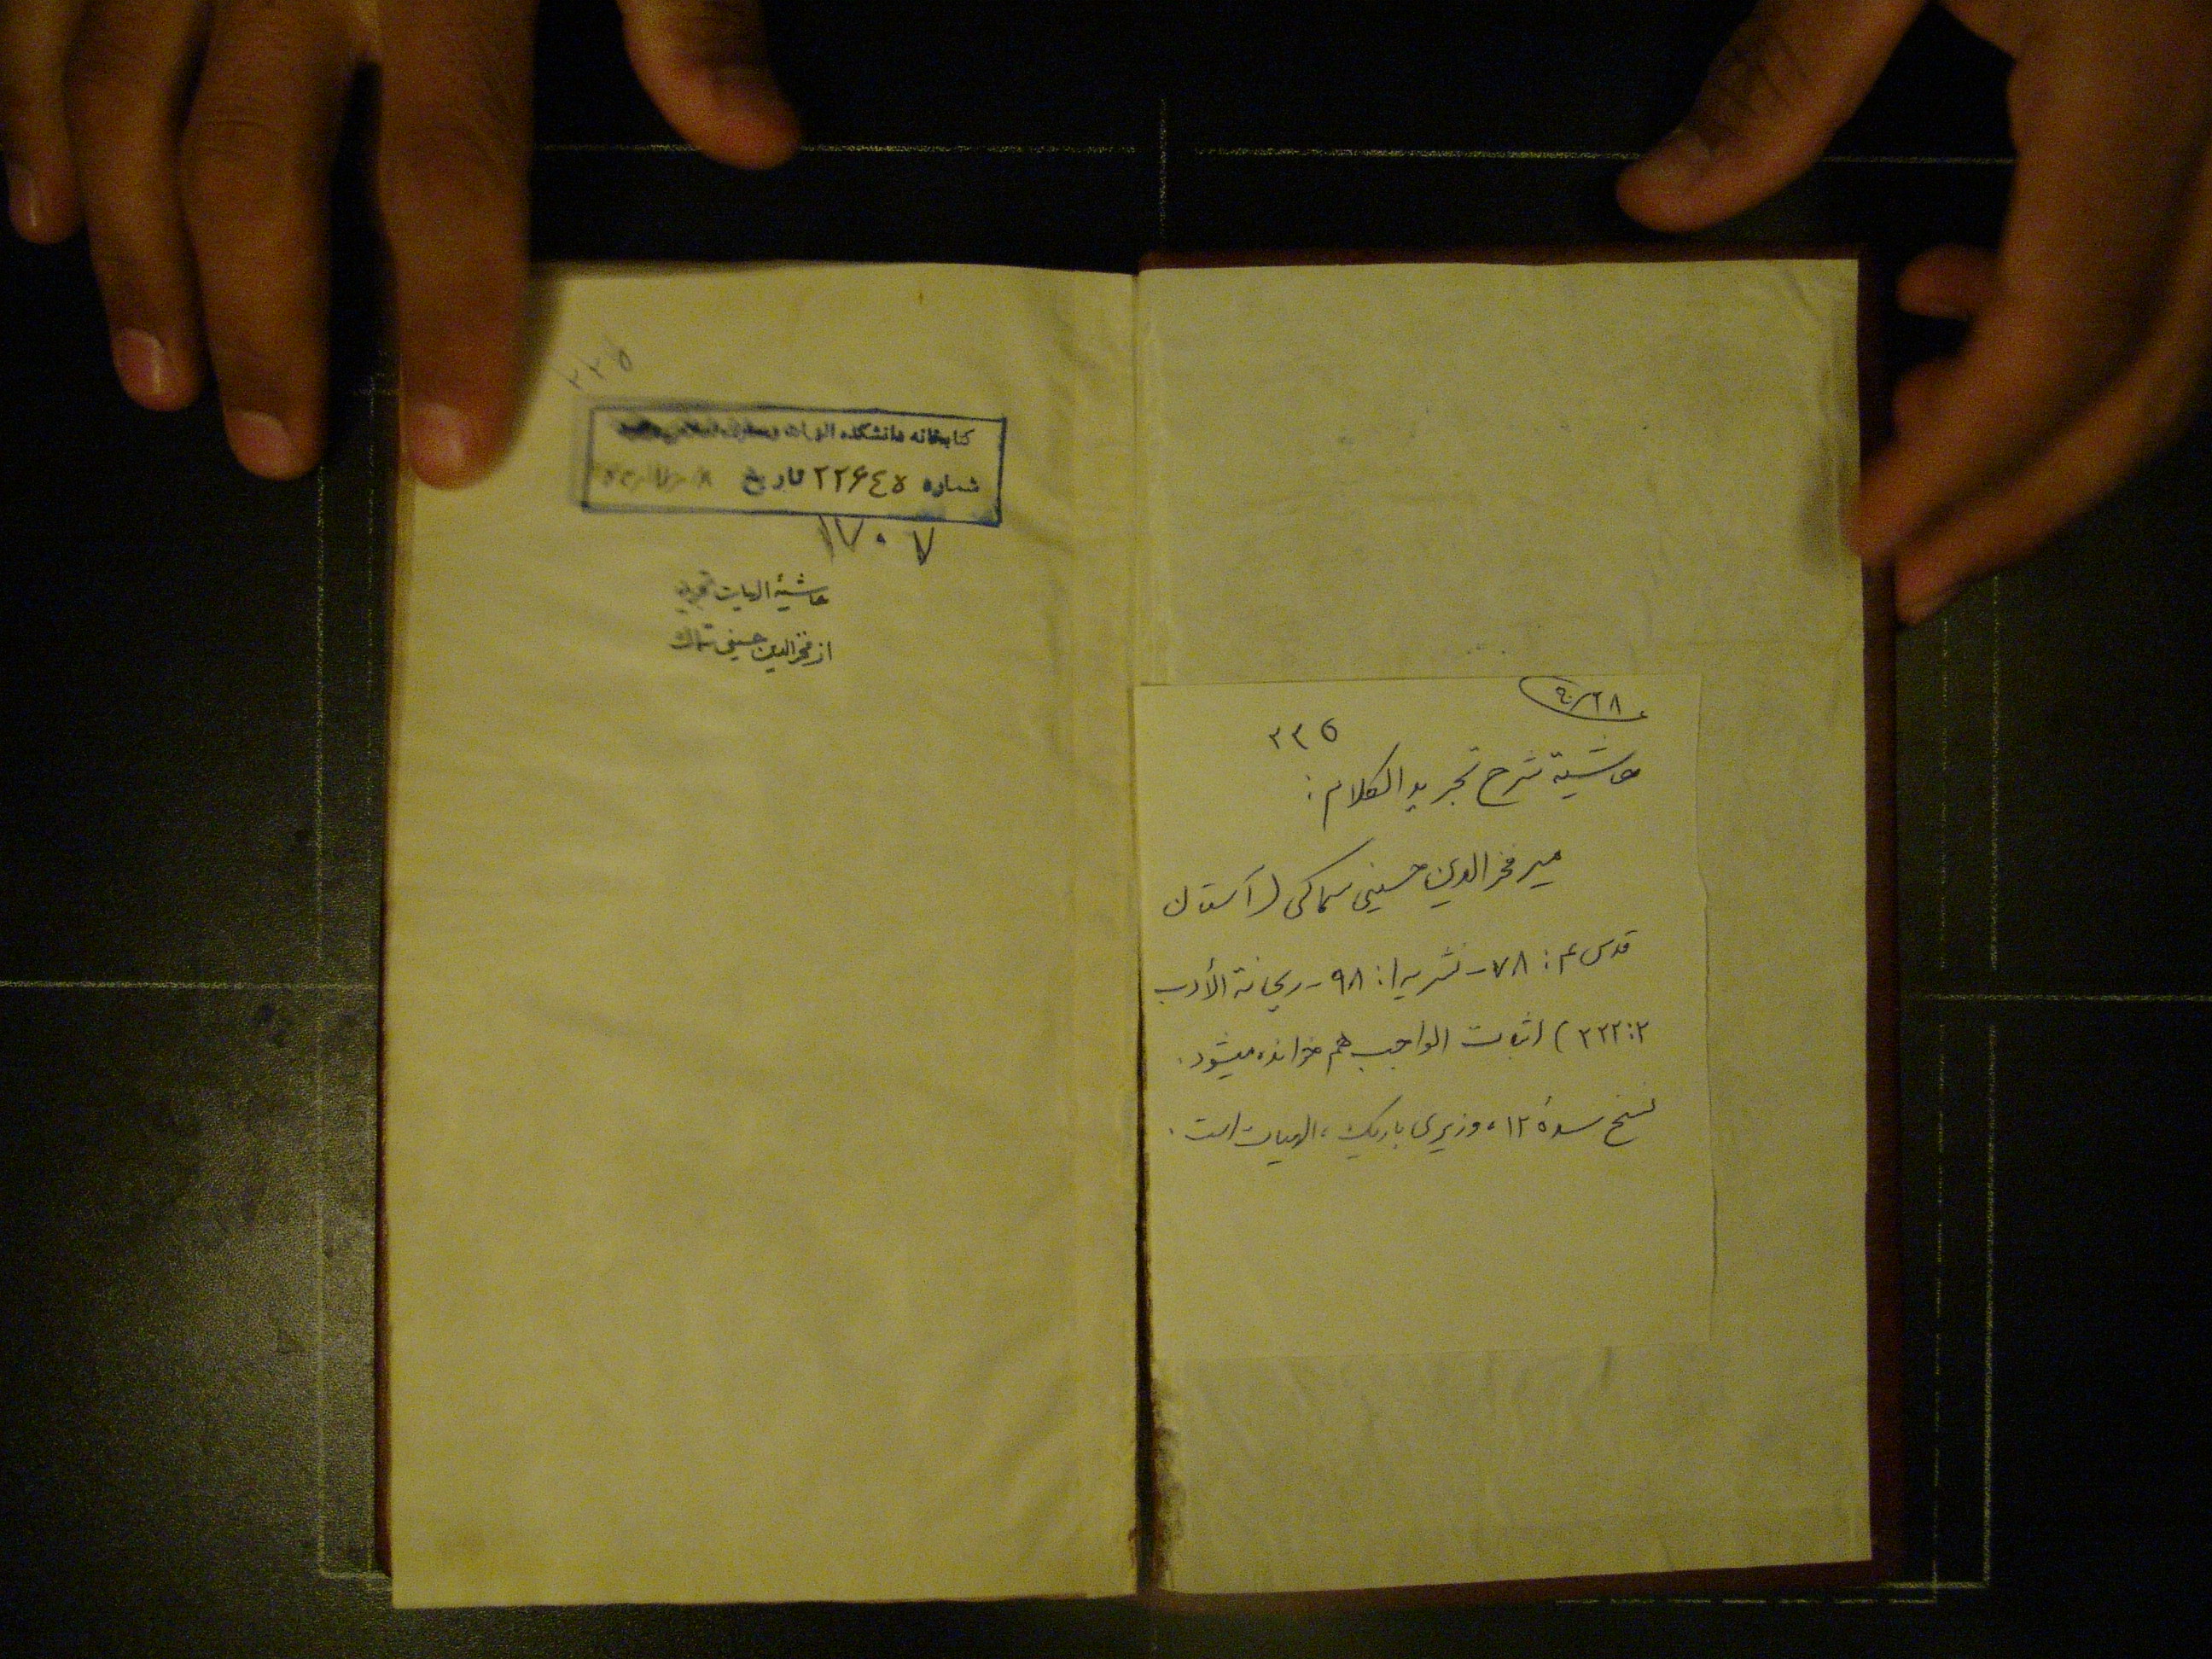 ۲۲۵
کتابخانه دانشکده الهیات و معارف اسلامی مشهد
شماره ۲۲۶٤۵ تاریخ
۱۷۰۷
حاشیهٔ الهیات تجرید
از فخرالدین حسینی سماک
۹۰/۲۸
۲۲۵
حاشیة شرح تجرید الکلام :
میر فخرالدین حسینی سماکی (آستان
قدس ۴ : ۷۸ - نشریه ۱ : ۹۸ - ریحانة الأدب
۲ : ۲۲۲ ) اثبات الواجب هم خوانده میشود .
نسخ سدهٔ ۱۲ ، وزیری باریک ، الهیات است .